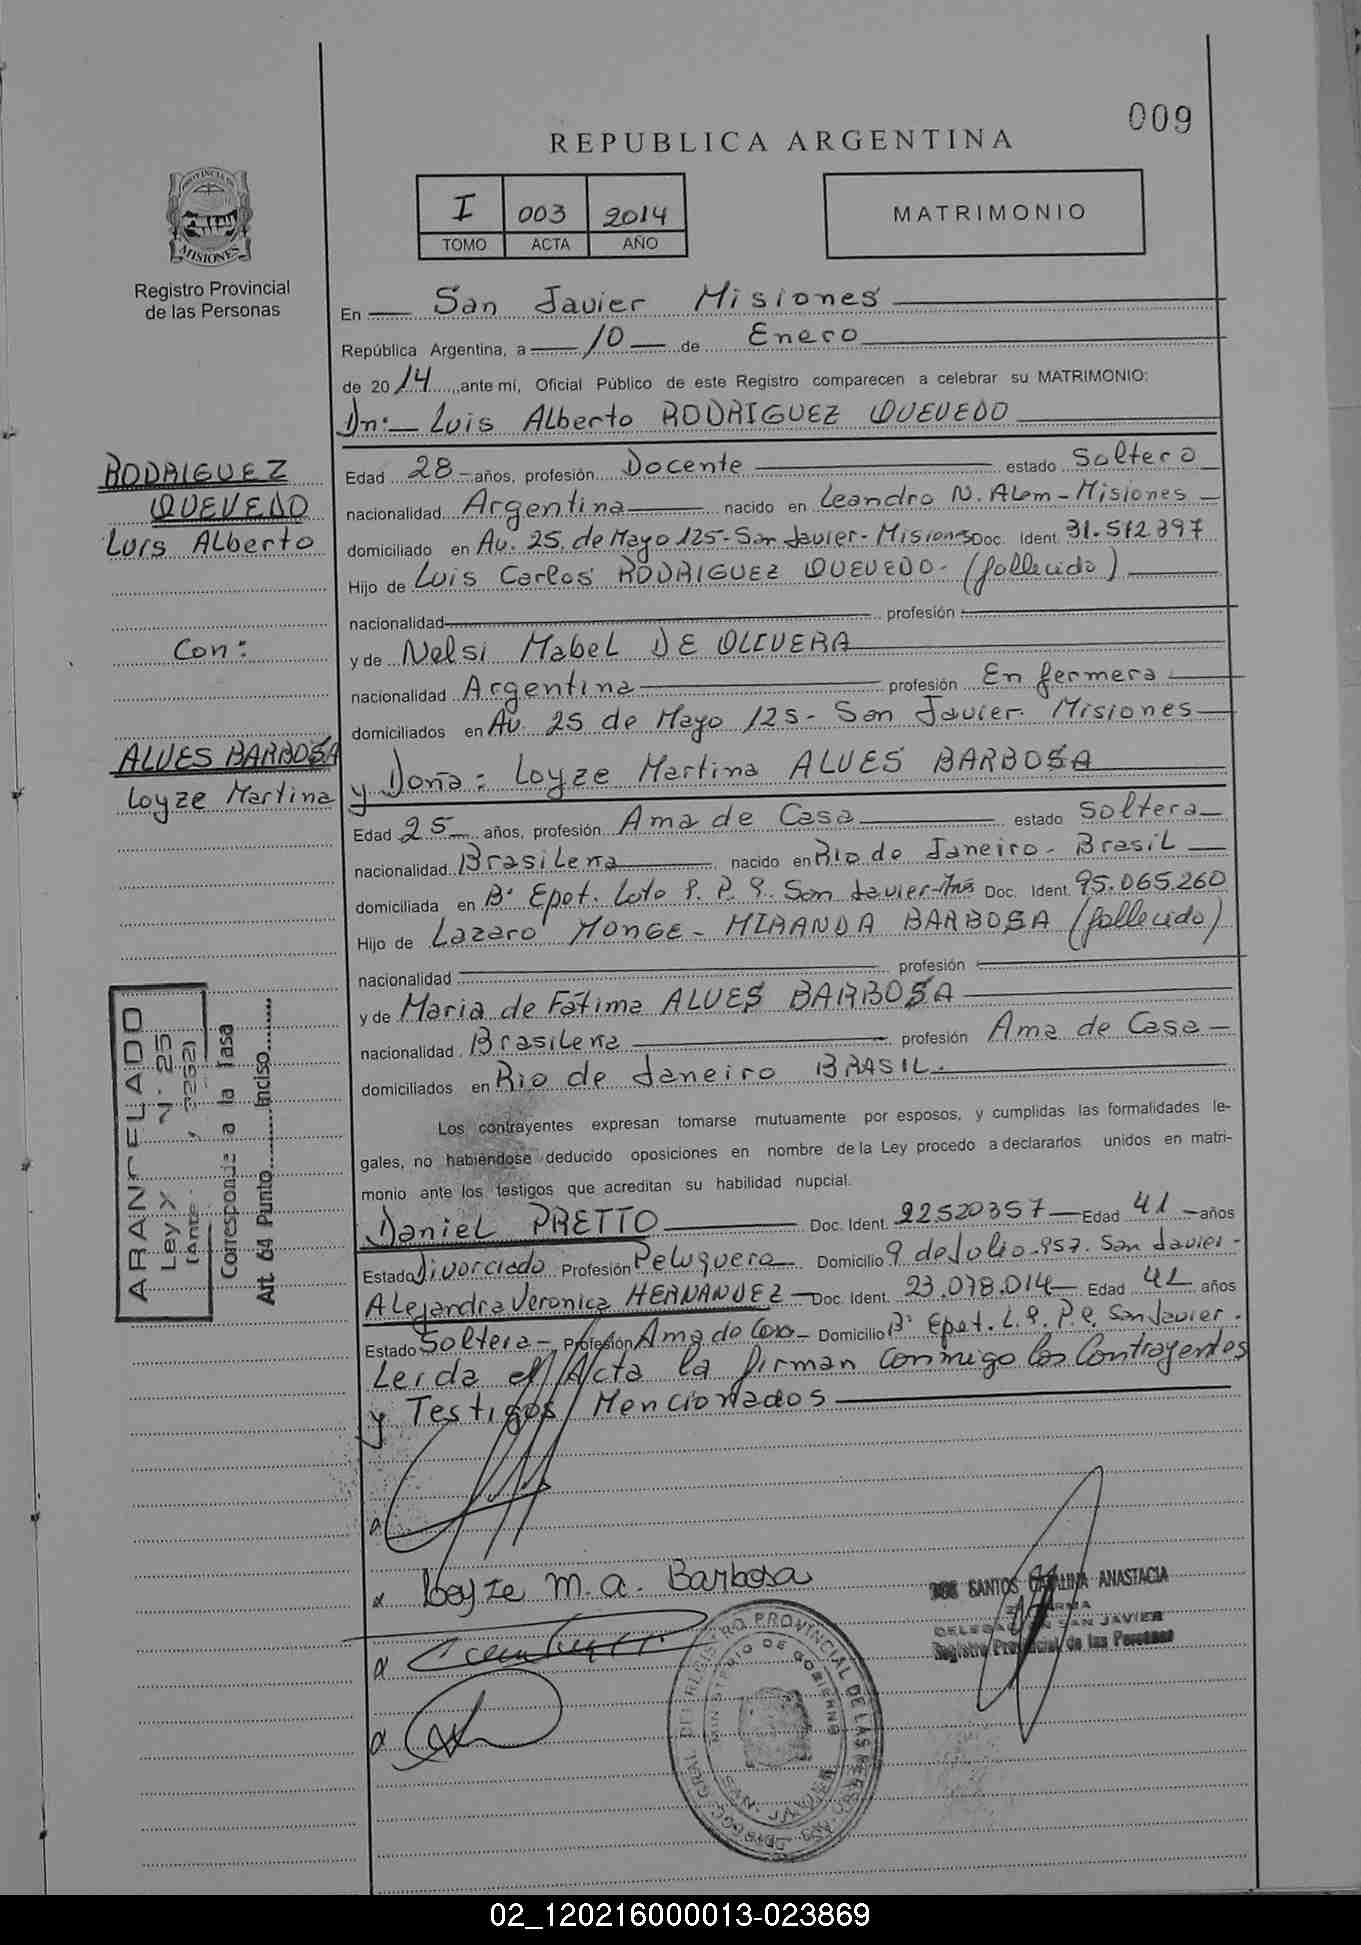 009
REPUBLICA ARGENTINA
PROVINCIA DE
MISIONES
Registro Provincial
de las Personas
I 003 2014
TOMO ACTA AÑO
MATRIMONIO
En San Javier Misiones
República Argentina, a 10 de Enero
de 2014, ante mí, Oficial Público de este Registro comparecen a celebrar su MATRIMONIO:
Dn: Luis Alberto RODRIGUEZ QUEVEDO
RODRIGUEZ
QUEVEDO
Luis Alberto
Con:
ALVES BARBOSA
Loyze Martina
Edad 28 años, profesión Docente estado Soltero
nacionalidad Argentina nacido en Leandro N. Alem - Misiones
domiciliado en Av. 25 de Mayo 125 - San Javier - Misiones Doc. Ident. 31.512.397
Hijo de Luis Carlos RODRIGUEZ QUEVEDO - (fallecido)
nacionalidad profesión
y de Nelsi Mabel DE OLIVERA
nacionalidad Argentina profesión Enfermera
domiciliados en Av. 25 de Mayo 125 - San Javier - Misiones
y Doña: Loyze Martina ALVES BARBOSA
Edad 25 años, profesión Ama de Casa estado Soltera
nacionalidad Brasileña nacido en Rio de Janeiro - Brasil
domiciliada en B° Epet. Lote P. P. 9. San Javier - Mns Doc. Ident. 95.065.260
Hijo de Lazaro MONGE - MIRANDA BARBOSA (fallecido)
nacionalidad profesión
y de Maria de Fátima ALVES BARBOSA
nacionalidad Brasileña profesión Ama de Casa
domiciliados en Rio de Janeiro BRASIL.
Los contrayentes expresan tomarse mutuamente por esposos, y cumplidas las formalidades le-
gales, no habiéndose deducido oposiciones en nombre de la Ley procedo a declararlos unidos en matri-
monio ante los testigos que acreditan su habilidad nupcial.
Daniel PRETTO Doc. Ident. 22520357 Edad 41 años
Estado Divorciado Profesión Peluquero Domicilio 9 de Julio 957. San Javier -
Alejandra Veronica HERNANDEZ Doc. Ident. 23.078.014 Edad 41 años
Estado Soltera Profesión Ama de Casa Domicilio B° Epet. L. 9. P. 9. San Javier.
Leida el Acta la firman conmigo los Contrayentes
y Testigos Mencionados
ARANCELADO
Ley X N° 25
(Ante
Corresponde a la Tasa
Art. 64 Punto Inciso
Loyze m. a. Barbosa
DOS SANTOS CATALINA ANASTACIA
DELEGACION SAN JAVIER
Registro Provincial de las Personas
REGISTRO PROVINCIAL DE LAS PERSONAS
MINISTERIO DE GOBIERNO
SAN JAVIER
02_120216000013-023869